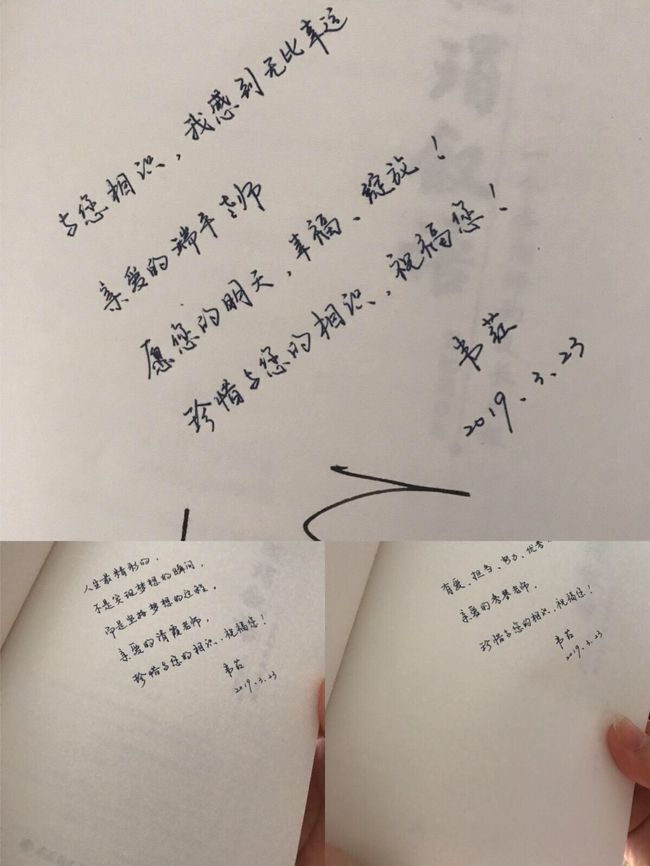 与您相识，我感到无比幸运
亲爱的端辛老师
愿您的明天，幸福、绽放！
珍惜与您的相识，祝福您！
韦荭
2019.3.23
人生最精彩的，
不是实现梦想的瞬间，
而是坚持梦想的过程。
亲爱的清霞老师，
珍惜与您的相识，祝福您！
韦荭
2019.3.23
有爱、担当、努力、优秀
亲爱的老师，
珍惜与您的相识，祝福您！
韦荭
2019.3.23